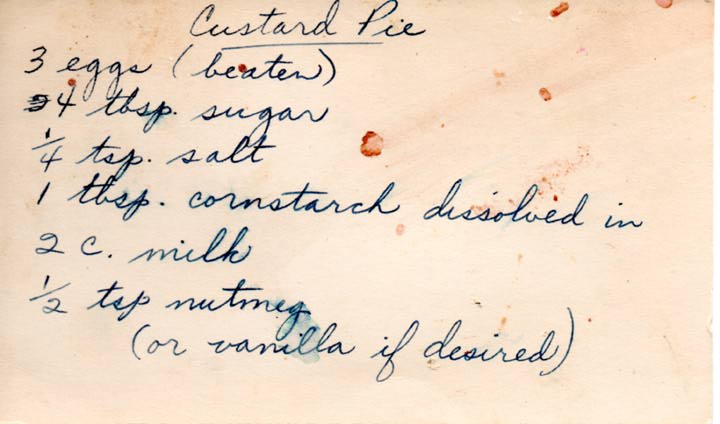 Custard Pie
3 eggs (beaten)
4 tbsp. sugar
1/4 tsp. salt
1 tbsp. cornstarch dissolved in
2 c. milk
1/2 tsp nutmeg
(or vanilla if desired)